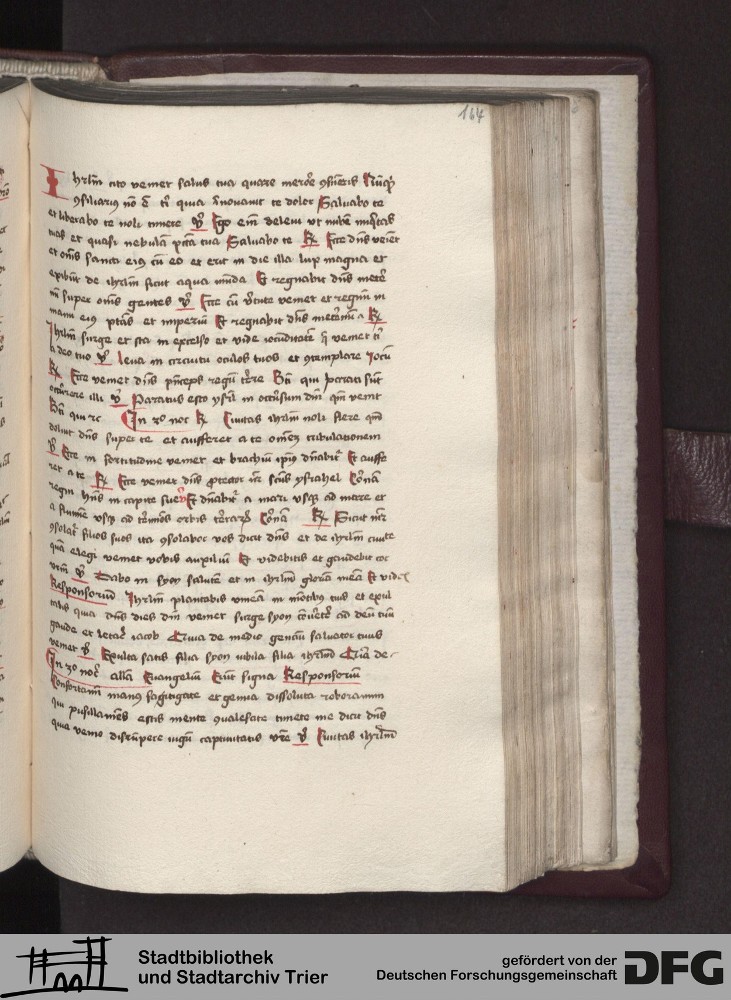 164
Ihrlm cito veniet salus tua quare merore 9sumeris Nuqd
9siliarius no e ti quia innovavit te dolor Salvabo te
et liberabo te noli timere V Ego eim delevi vt nube iniqtas
tuas et quasi nebula pcta tua Salvabo te R Ecce dns veniet
et oms sancti eius cu eo et erit in die illa lux magna et
exibut de ihrlm sicut aqua muda Et regnabit dns in eter
nu super oms gentes V Ecce cu vtute veniet et regnu in
manu eius ptas et imperiu Et regnabit dns in eternu R
Ihrlm surge et sta in excelso et vide iocuditate q veniet ti
a deo tuo V Leva in circuitu oculos tuos et 9templare Iocu
R Ecce veniet dns pnceps regu terre Bti qui parati sut
occurrere illi V Paratus esto ysrl in occursum dni qm venit
Bti qui rc In 2o noc R Civitas ihrlm noli flere qm
doluit dns super te et aufferet a te omem tribulationem
V Ecce in fortitudine veniet et brachiu ipius dnabit Et auffe
ret a te R Ecce veniet dns ptector nr scus ysrahel Corona
regni hns in capite suo V Et dnabit a mari vsq ad mare et
a flumie vsq ad termios orbis terrarum Corona R Sicut mr
9solat filios suos ita 9solabor vos dicit dns et de ihrlm civite
qua elegi veniet vobis auxiliu Et videbitis et gaudebit cor
vrm V Dabo in syon salute et in ihrlm gloria mea Et vide
Responsoriu Ihrlm plantabis vinea in motibus tuis et exul
tabis quia dns dies dni veniet surge syon covertere ad deu tuu
gaude et letare iacob Quia de medio genciu salvator tuus
veniet V Exulta satis filia syon iubila filia ihrlm Quia de
In 3o noc alia Evangeliu Erut signa Responsoriu
Confortamini manus fatigate et genua dissoluta roboramini
qui pusillanies estis mente 9valescite timete me dicit dns
quia venio disrupere iugu captivitatis vre V Civitas ihrlm
Stadtbibliothek
und Stadtarchiv Trier
gefördert von der
Deutschen Forschungsgemeinschaft
DFG